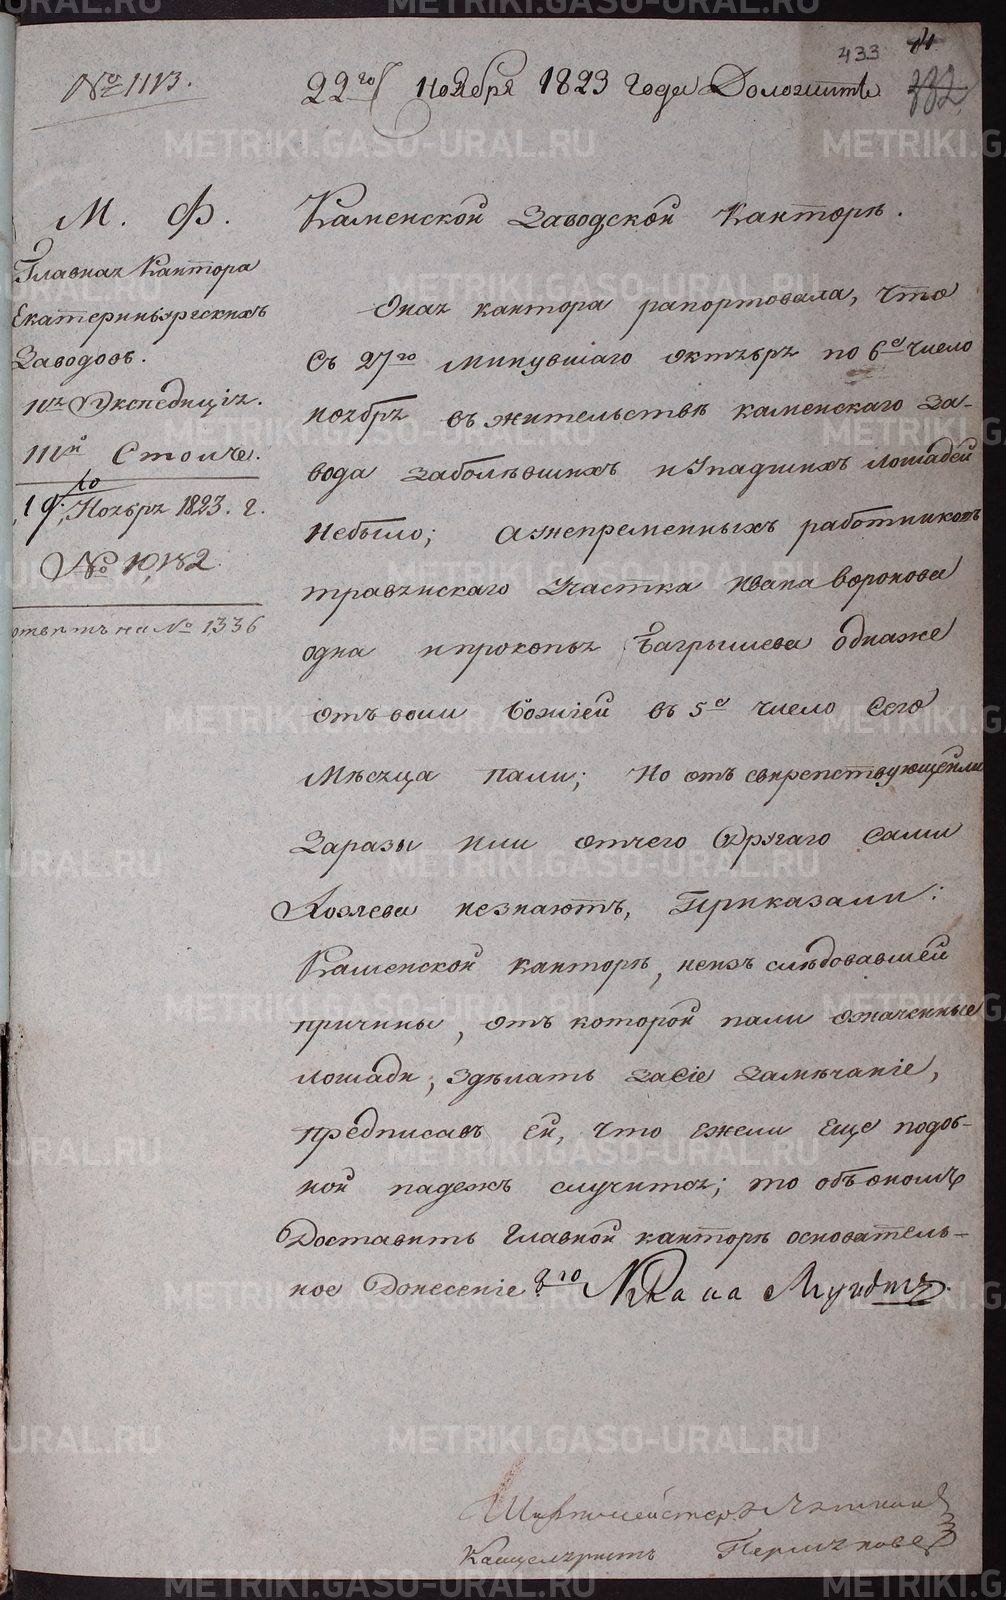 433
382
№ 1113.
22го Ноября 1823 года Доложить
М. Ф.
Главная Кантора
Екатеринбургскихъ
Заводовъ.
Экспедиція.
Столъ.
19го Ноября 1823. г.
№ 10,182.
ответъ на № 1336
Каменской Заводской Канторѣ.
Оная кантора рапортовала, что
съ 27го минувшаго октября по 6е число
ноября въ жительствѣ каменскаго за-
вода заболѣвшихъ и упадшихъ лошадей
небыло; а у непременныхъ работниковъ
травянскаго участка Ивана Воронова
одна и прокопья Багрышева одна же
отъ воли Божіей въ 5е число сего
Мѣсяца пали; Но отъ свирепствующей ли
заразы или отчего другаго сами
Хозяева незнаютъ, Приказали:
Каменской канторѣ, неизъ следовавшей
причины, отъ которой пали означенные
лошади, здѣлать засіе замѣчаніе,
предписавъ ей, что ежели еще подоб-
ной падежъ случится; то объ ономъ
Доставить главной канторѣ основатель-
ное Донесеніе
Шихтмейстеръ
Канцеляристъ Пермяковъ
METRIKI.GASO-URAL.RU